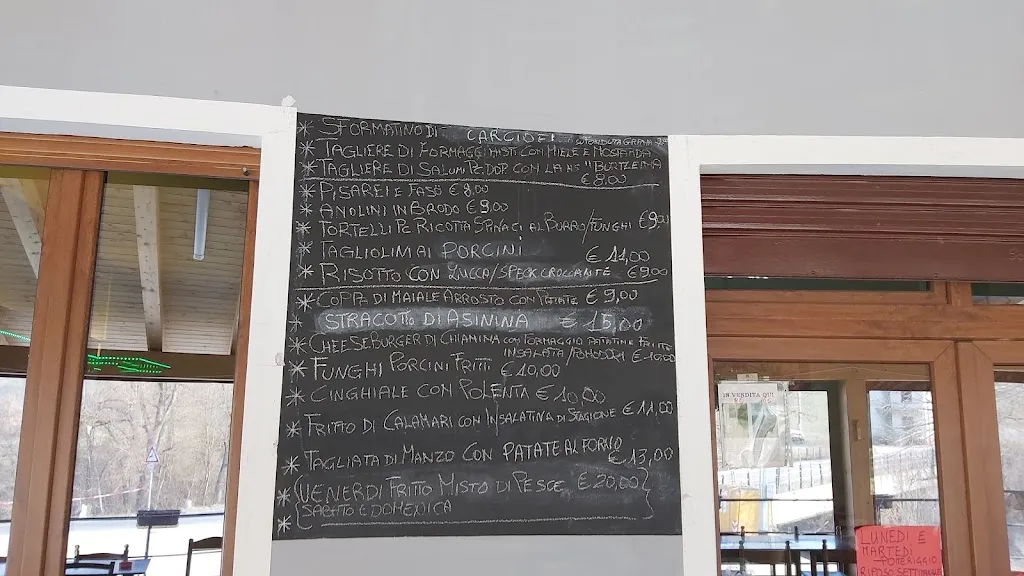 * SFORMATINO DI CARCIOFI
* TAGLIERE DI FORMAGGI MISTI CON MIELE E MOSTARDA
* TAGLIERE DI SALUMI PC DOP CON LA NS BURTLEINA
€ 8,00
* PISAREI E FASÖ € 8,00
* ANOLINI IN BRODO € 9,00
* TORTELLI PC RICOTTA SPINACI AL BURRO/FUNGHI € 9,00
* TAGLIOLINI AI PORCINI € 11,00
* RISOTTO CON ZUCCA/SPECK CROCCANTE € 9,00
* COPPA DI MAIALE ARROSTO CON PATATE € 9,00
* STRACOTTO DI ASININA € 15,00
* CHEESEBURGER DI CHIANINA CON FORMAGGIO PATATINE FRITTE
INSALATA/POMODORI € 10,00
* FUNGHI PORCINI FRITTI € 10,00
* CINGHIALE CON POLENTA € 10,00
* FRITTO DI CALAMARI CON INSALATINA DI STAGIONE € 11,00
* TAGLIATA DI MANZO CON PATATE AL FORNO
€ 13,00
* VENERDI FRITTO MISTO DI PESCE € 20,00
* SABATO E DOMENICA
IN VENDITA QUI
LUNEDI E
MARTEDI
POMERIGGIO
RIPOSO SETTIMANALE